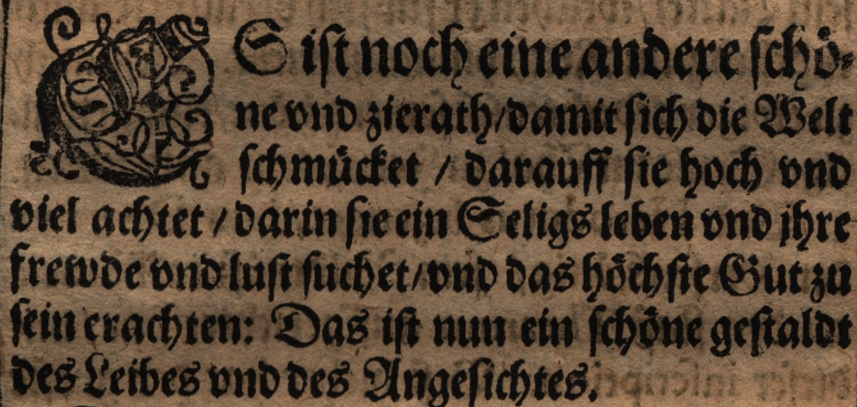 ES ist noch eine andere schö-
ne vnd zierath/damit sich die Welt
schmücket / darauff sie hoch vnd
viel achtet / darin sie ein Seligs leben vnd jhre
frewde vnd lust suchet/vnd das höchste Gut zu
sein erachten: Das ist nun ein schöne gestaldt
des Leibes vnd des Angesichtes.